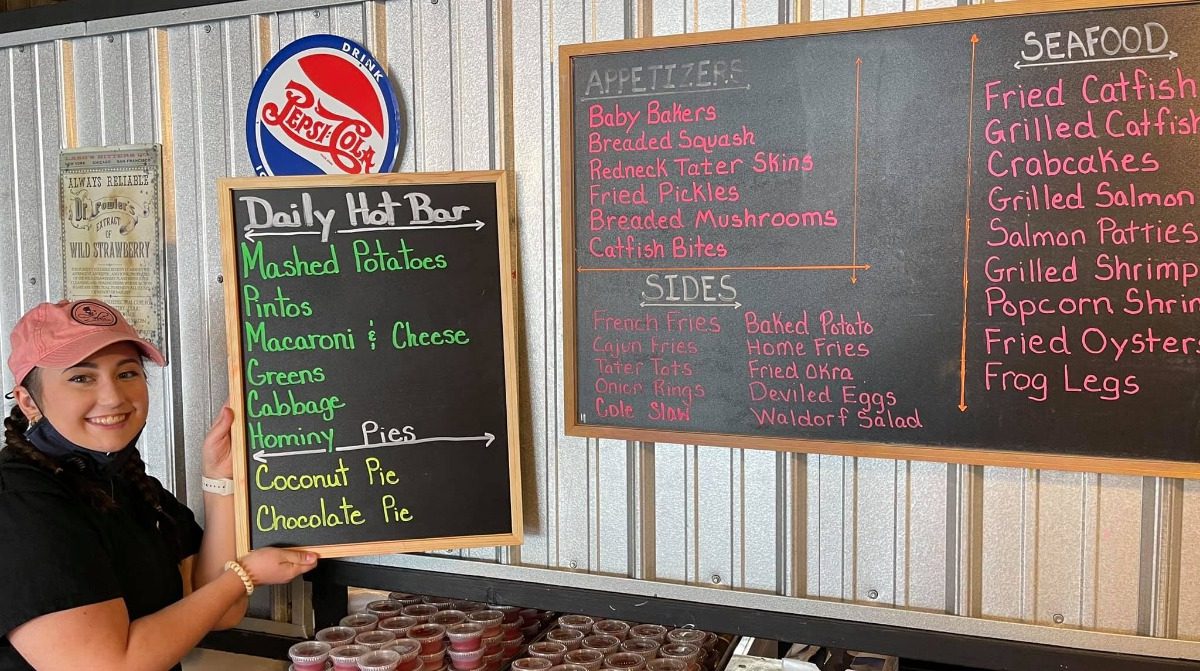 DRINK
PEPSI-COLA
ALWAYS RELIABLE
Dr. Fowler's
EXTRACT
OF
WILD STRAWBERRY
Daily Hot Bar
Mashed Potatoes
Pintos
Macaroni & Cheese
Greens
Cabbage
Hominy
Pies
Coconut Pie
Chocolate Pie
APPETIZERS
Baby Bakers
Breaded Squash
Redneck Tater Skins
Fried Pickles
Breaded Mushrooms
Catfish Bites
SIDES
French Fries
Cajun Fries
Tater Tots
Onion Rings
Cole Slaw
Baked Potato
Home Fries
Fried Okra
Deviled Eggs
Waldorf Salad
SEAFOOD
Fried Catfish
Grilled Catfish
Crabcakes
Grilled Salmon
Salmon Patties
Grilled Shrimp
Popcorn Shrim
Fried Oysters
Frog Legs